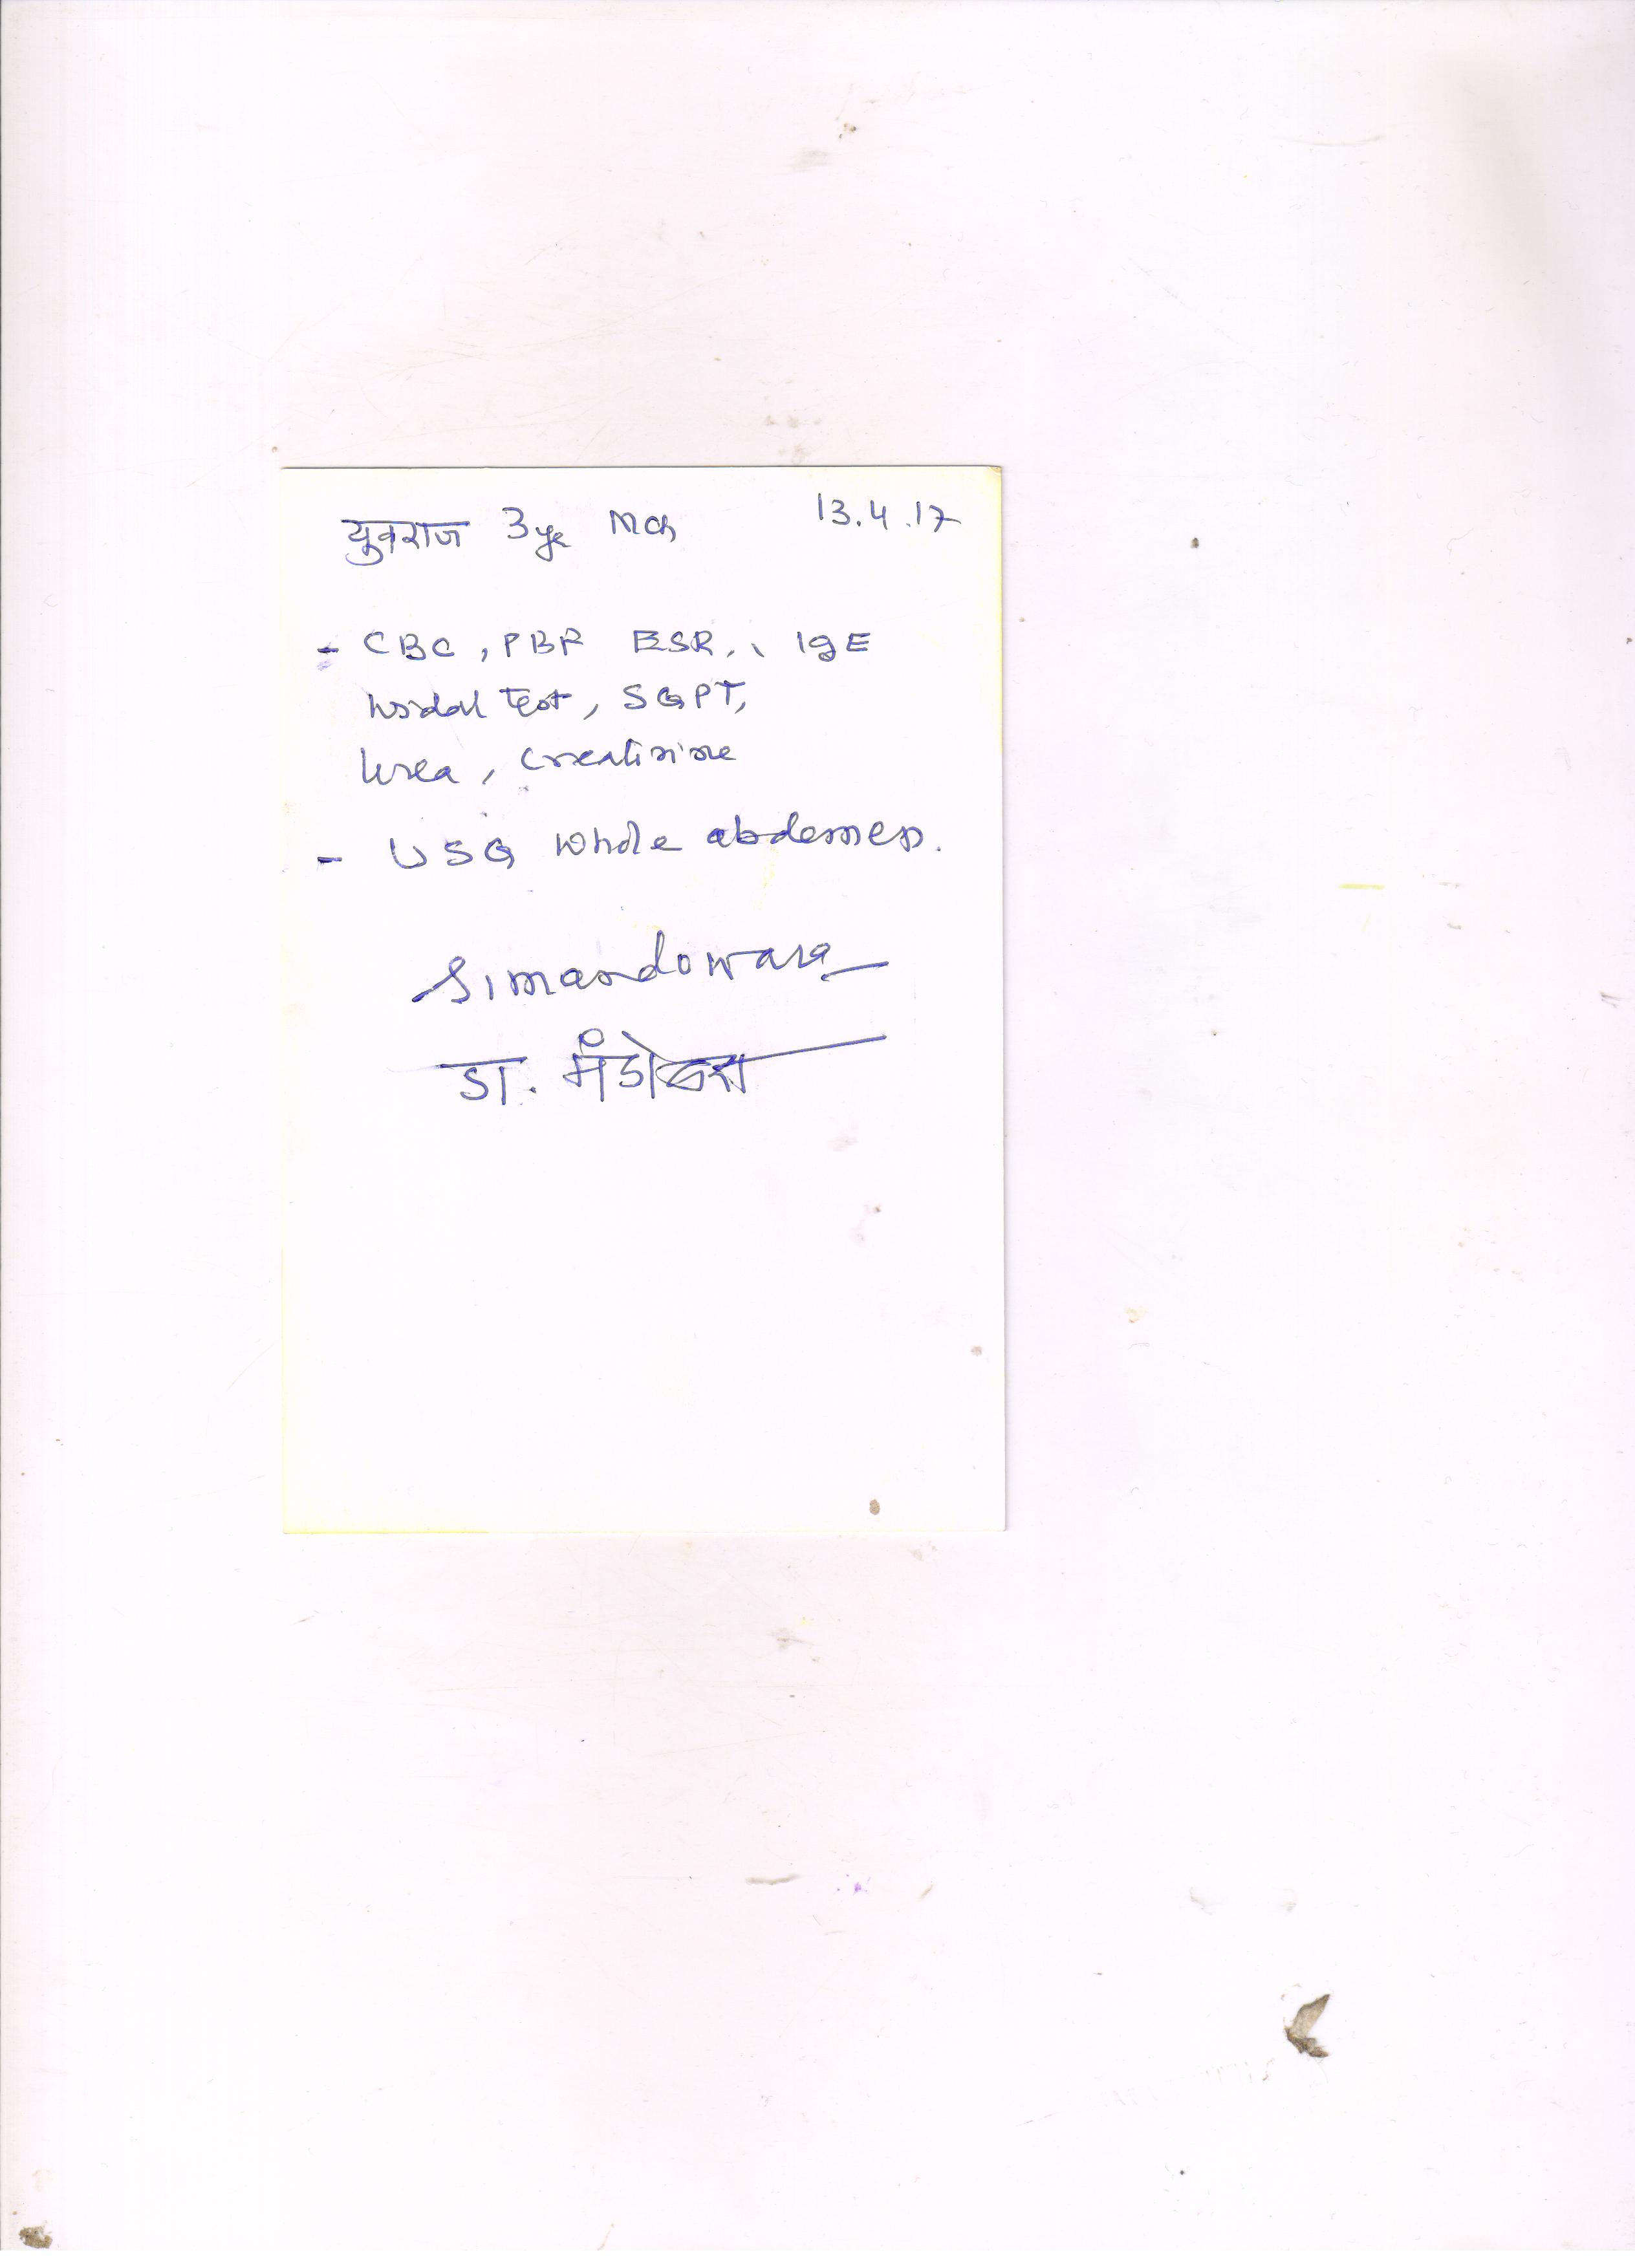 युवराज 3yr Mch 13.4.17
- CBC, PBF ESR, IgE
Widal Test, SGPT,
Urea, Creatinine
- USG Whole abdomen.
Simandowara
डा. मंडोवरा